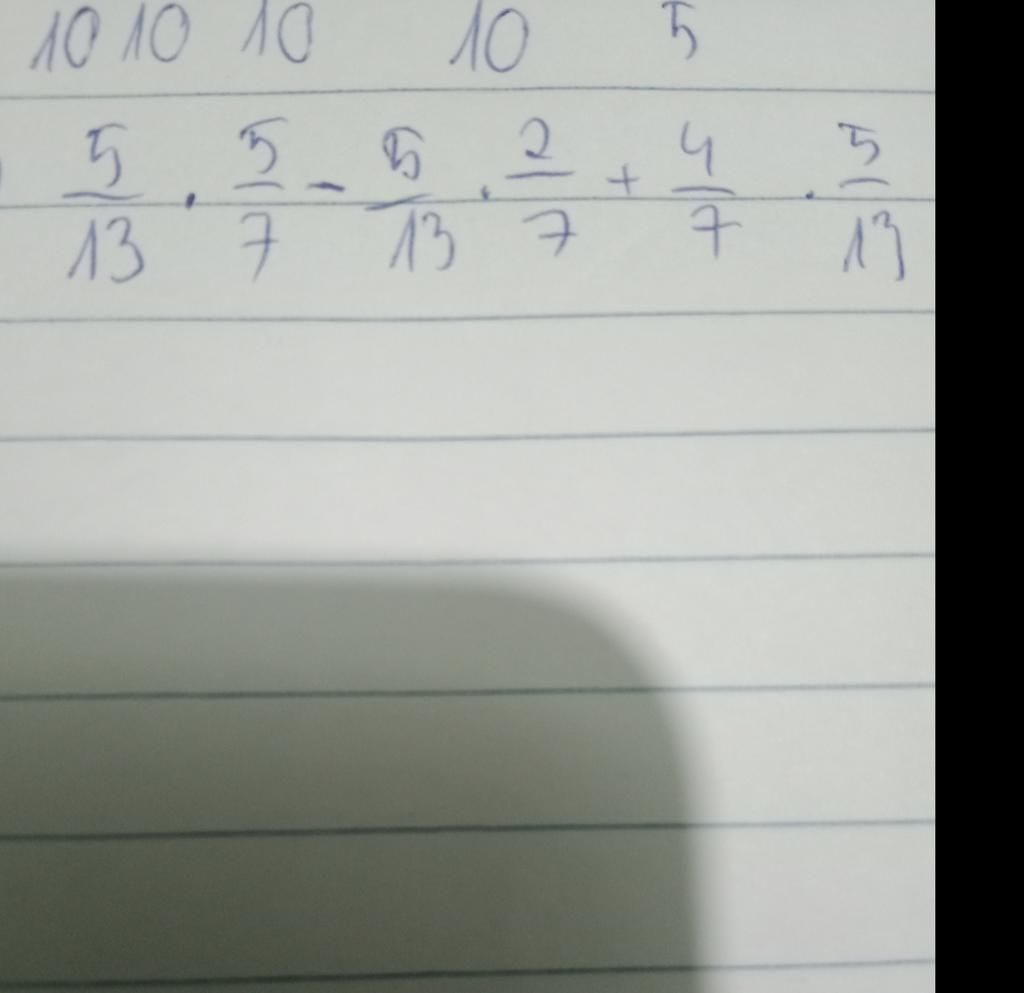 10 10 10 10 5
5/13 . 5/7 - 5/13 . 2/7 + 4/7 . 5/13